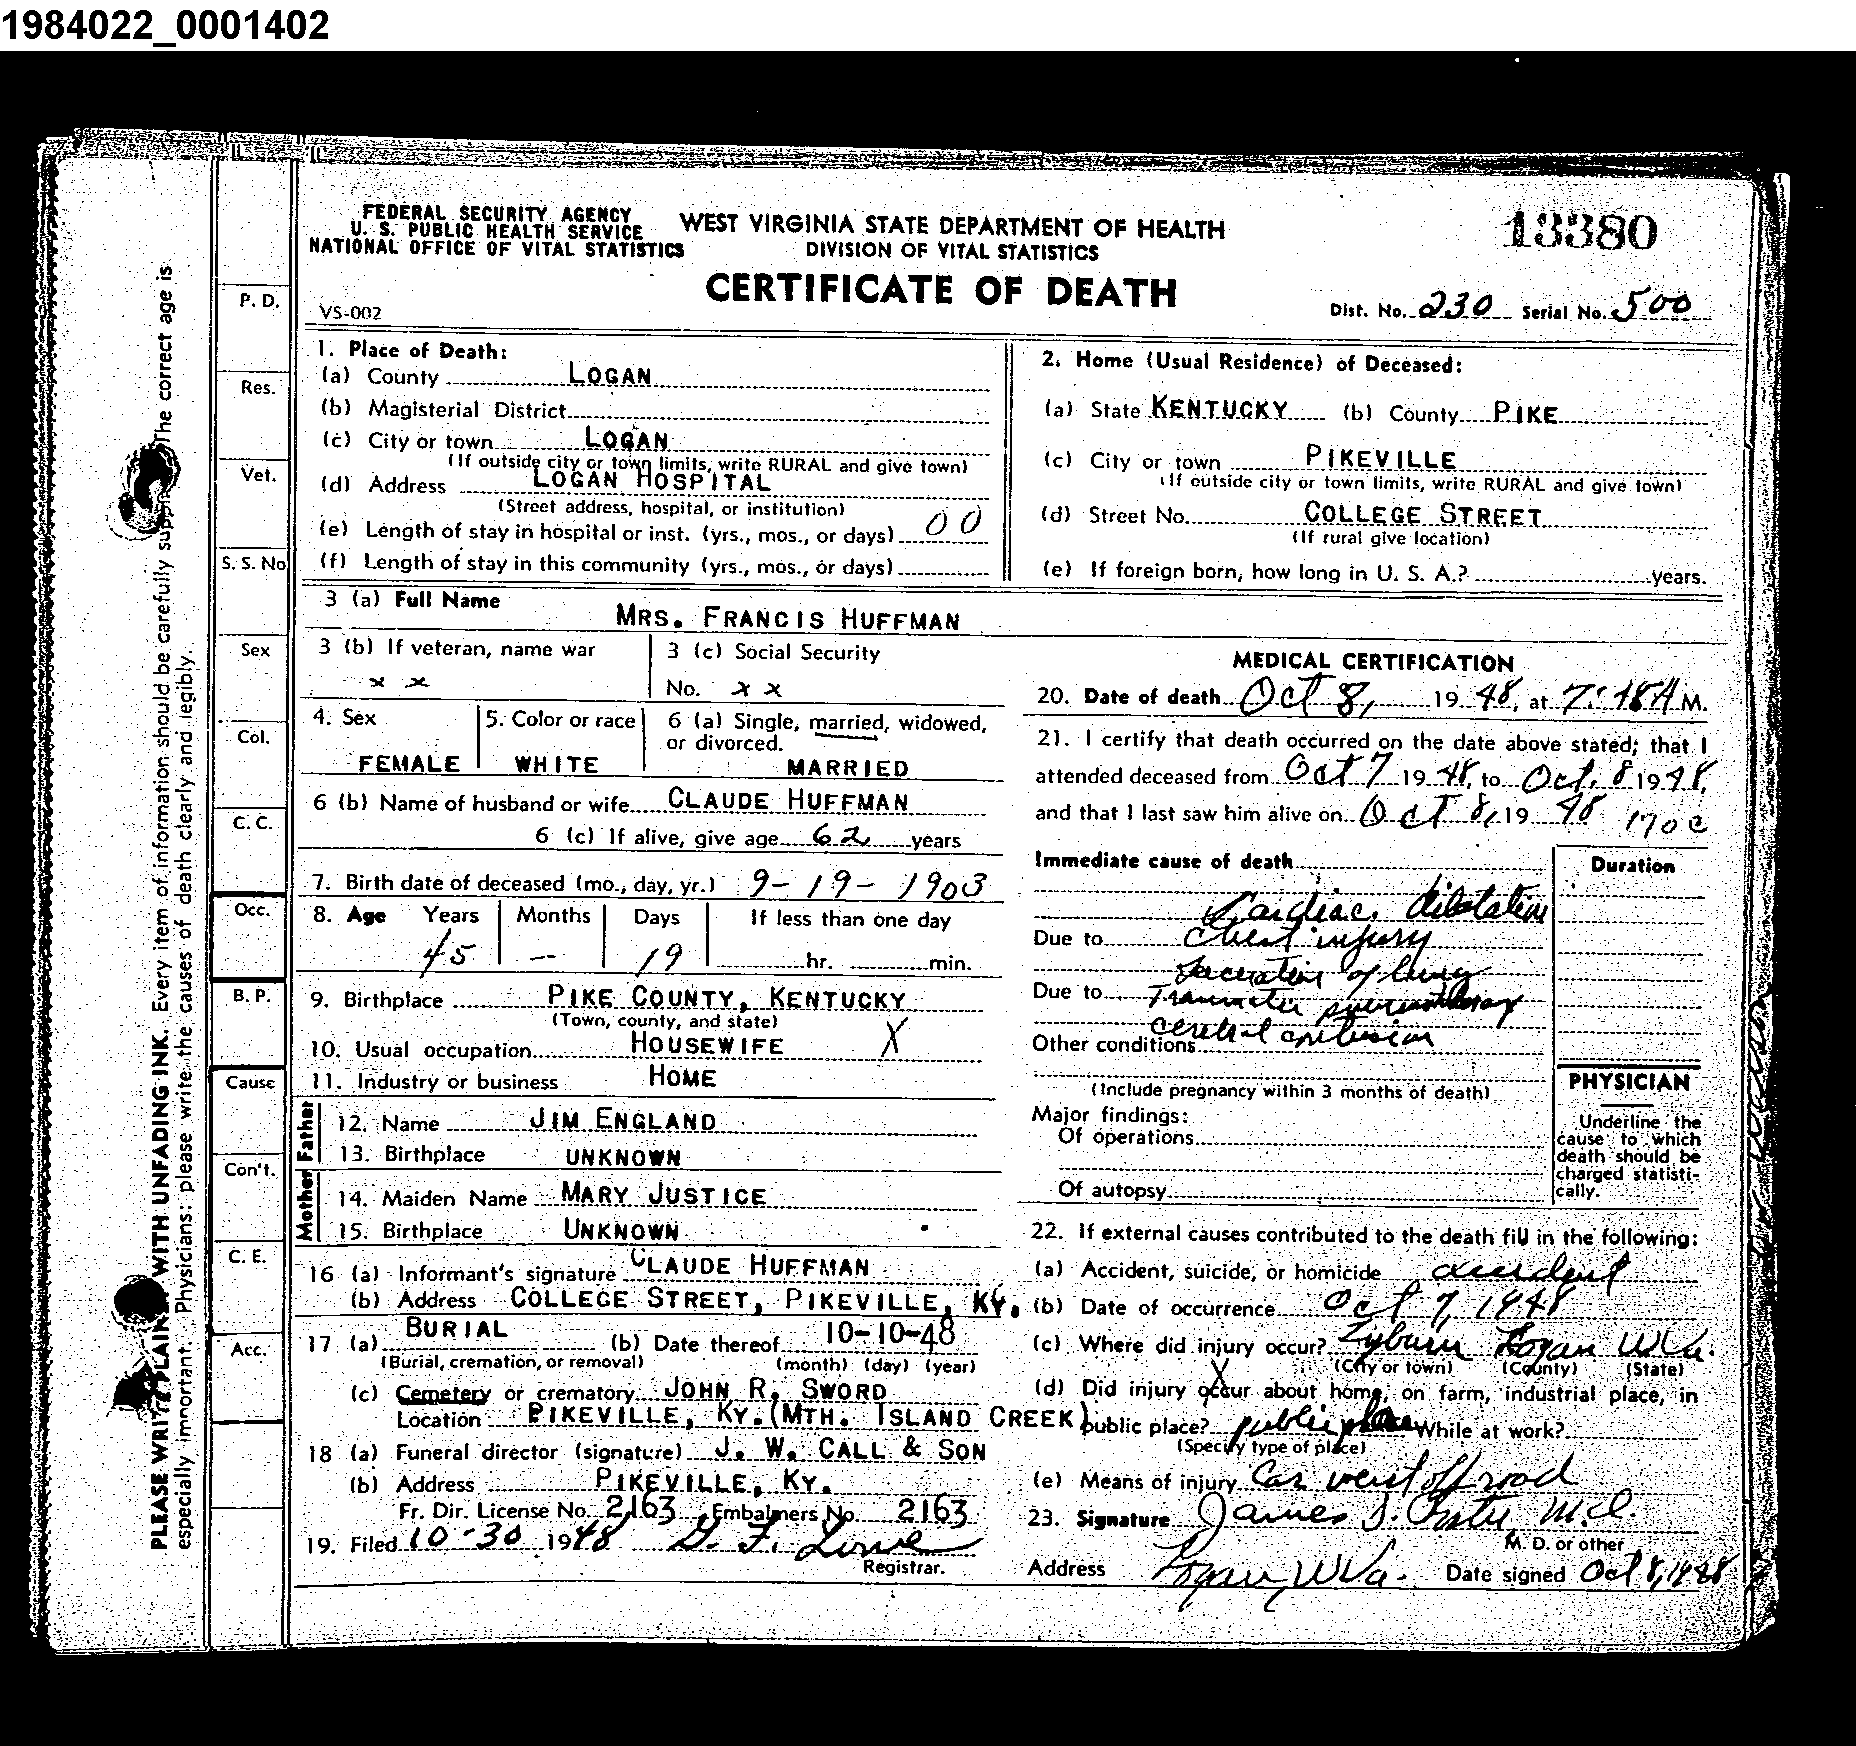 1984022_0001402
FEDERAL SECURITY AGENCY
U. S. PUBLIC HEALTH SERVICE
NATIONAL OFFICE OF VITAL STATISTICS
WEST VIRGINIA STATE DEPARTMENT OF HEALTH
DIVISION OF VITAL STATISTICS
CERTIFICATE OF DEATH
13380
VS-002
Dist. No. 230 Serial No. 500
PLEASE WRITE PLAINLY WITH UNFADING INK. Every item of information should be carefully supplied. The correct age is
especially important. Physicians: please write the causes of death clearly and legibly.
P. D.
Res.
Vet.
S. S. No
Sex
Col.
C. C.
Occ.
B. P.
Cause
Con't.
C. E.
Acc.
1. Place of Death:
(a) County LOGAN
(b) Magisterial District
(c) City or town LOGAN
(If outside city or town limits, write RURAL and give town)
(d) Address LOGAN HOSPITAL
(Street address, hospital, or institution)
(e) Length of stay in hospital or inst. (yrs., mos., or days) 00
(f) Length of stay in this community (yrs., mos., or days)
2. Home (Usual Residence) of Deceased:
(a) State KENTUCKY (b) County PIKE
(c) City or town PIKEVILLE
(If outside city or town limits, write RURAL and give town)
(d) Street No. COLLEGE STREET
(If rural give location)
(e) If foreign born, how long in U. S. A.? years.
3 (a) Full Name MRS. FRANCIS HUFFMAN
3 (b) If veteran, name war
x x
3 (c) Social Security
No. x x
4. Sex
FEMALE
5. Color or race
WHITE
6 (a) Single, married, widowed,
or divorced.
MARRIED
6 (b) Name of husband or wife CLAUDE HUFFMAN
6 (c) If alive, give age 62 years
7. Birth date of deceased (mo., day, yr.) 9-19-1903
8. Age Years Months Days If less than one day
45 -- 19 hr. min.
9. Birthplace PIKE COUNTY, KENTUCKY
(Town, county, and state)
10. Usual occupation HOUSEWIFE X
11. Industry or business HOME
Father
12. Name JIM ENGLAND
13. Birthplace UNKNOWN
Mother
14. Maiden Name MARY JUSTICE
15. Birthplace UNKNOWN
16 (a) Informant's signature CLAUDE HUFFMAN
(b) Address COLLEGE STREET, PIKEVILLE, KY.
17 (a) BURIAL (b) Date thereof 10-10-48
(Burial, cremation, or removal) (month) (day) (year)
(c) Cemetery or crematory JOHN R. SWORD
Location PIKEVILLE, KY. (MTH. ISLAND CREEK)
18 (a) Funeral director (signature) J. W. CALL & SON
(b) Address PIKEVILLE, KY.
Fr. Dir. License No. 2163 Embalmers No. 2163
19. Filed 10-30 1948
Registrar.
MEDICAL CERTIFICATION
20. Date of death Oct 8, 1948, at 7:48 A M.
21. I certify that death occurred on the date above stated; that I
attended deceased from Oct 7 1948, to Oct. 8 1948,
and that I last saw him alive on Oct 8, 1948 170c
Immediate cause of death Duration
Cardiac dilatation
Due to chest injury
Laceration of lung
Due to Traumatic
cerebral contusion
Other conditions
(Include pregnancy within 3 months of death)
Major findings:
Of operations
Of autopsy
PHYSICIAN
Underline the
cause to which
death should be
charged statisti-
cally.
22. If external causes contributed to the death fill in the following:
(a) Accident, suicide, or homicide accident
(b) Date of occurrence Oct 7, 1948
(c) Where did injury occur? Logan W Va.
(City or town) (County) (State)
(d) Did injury occur about home, on farm, industrial place, in
public place? public place While at work?
(Specify type of place)
(e) Means of injury Car went off road
23. Signature James M.D.
M. D. or other
Address Logan, W Va. Date signed Oct 8, 1948